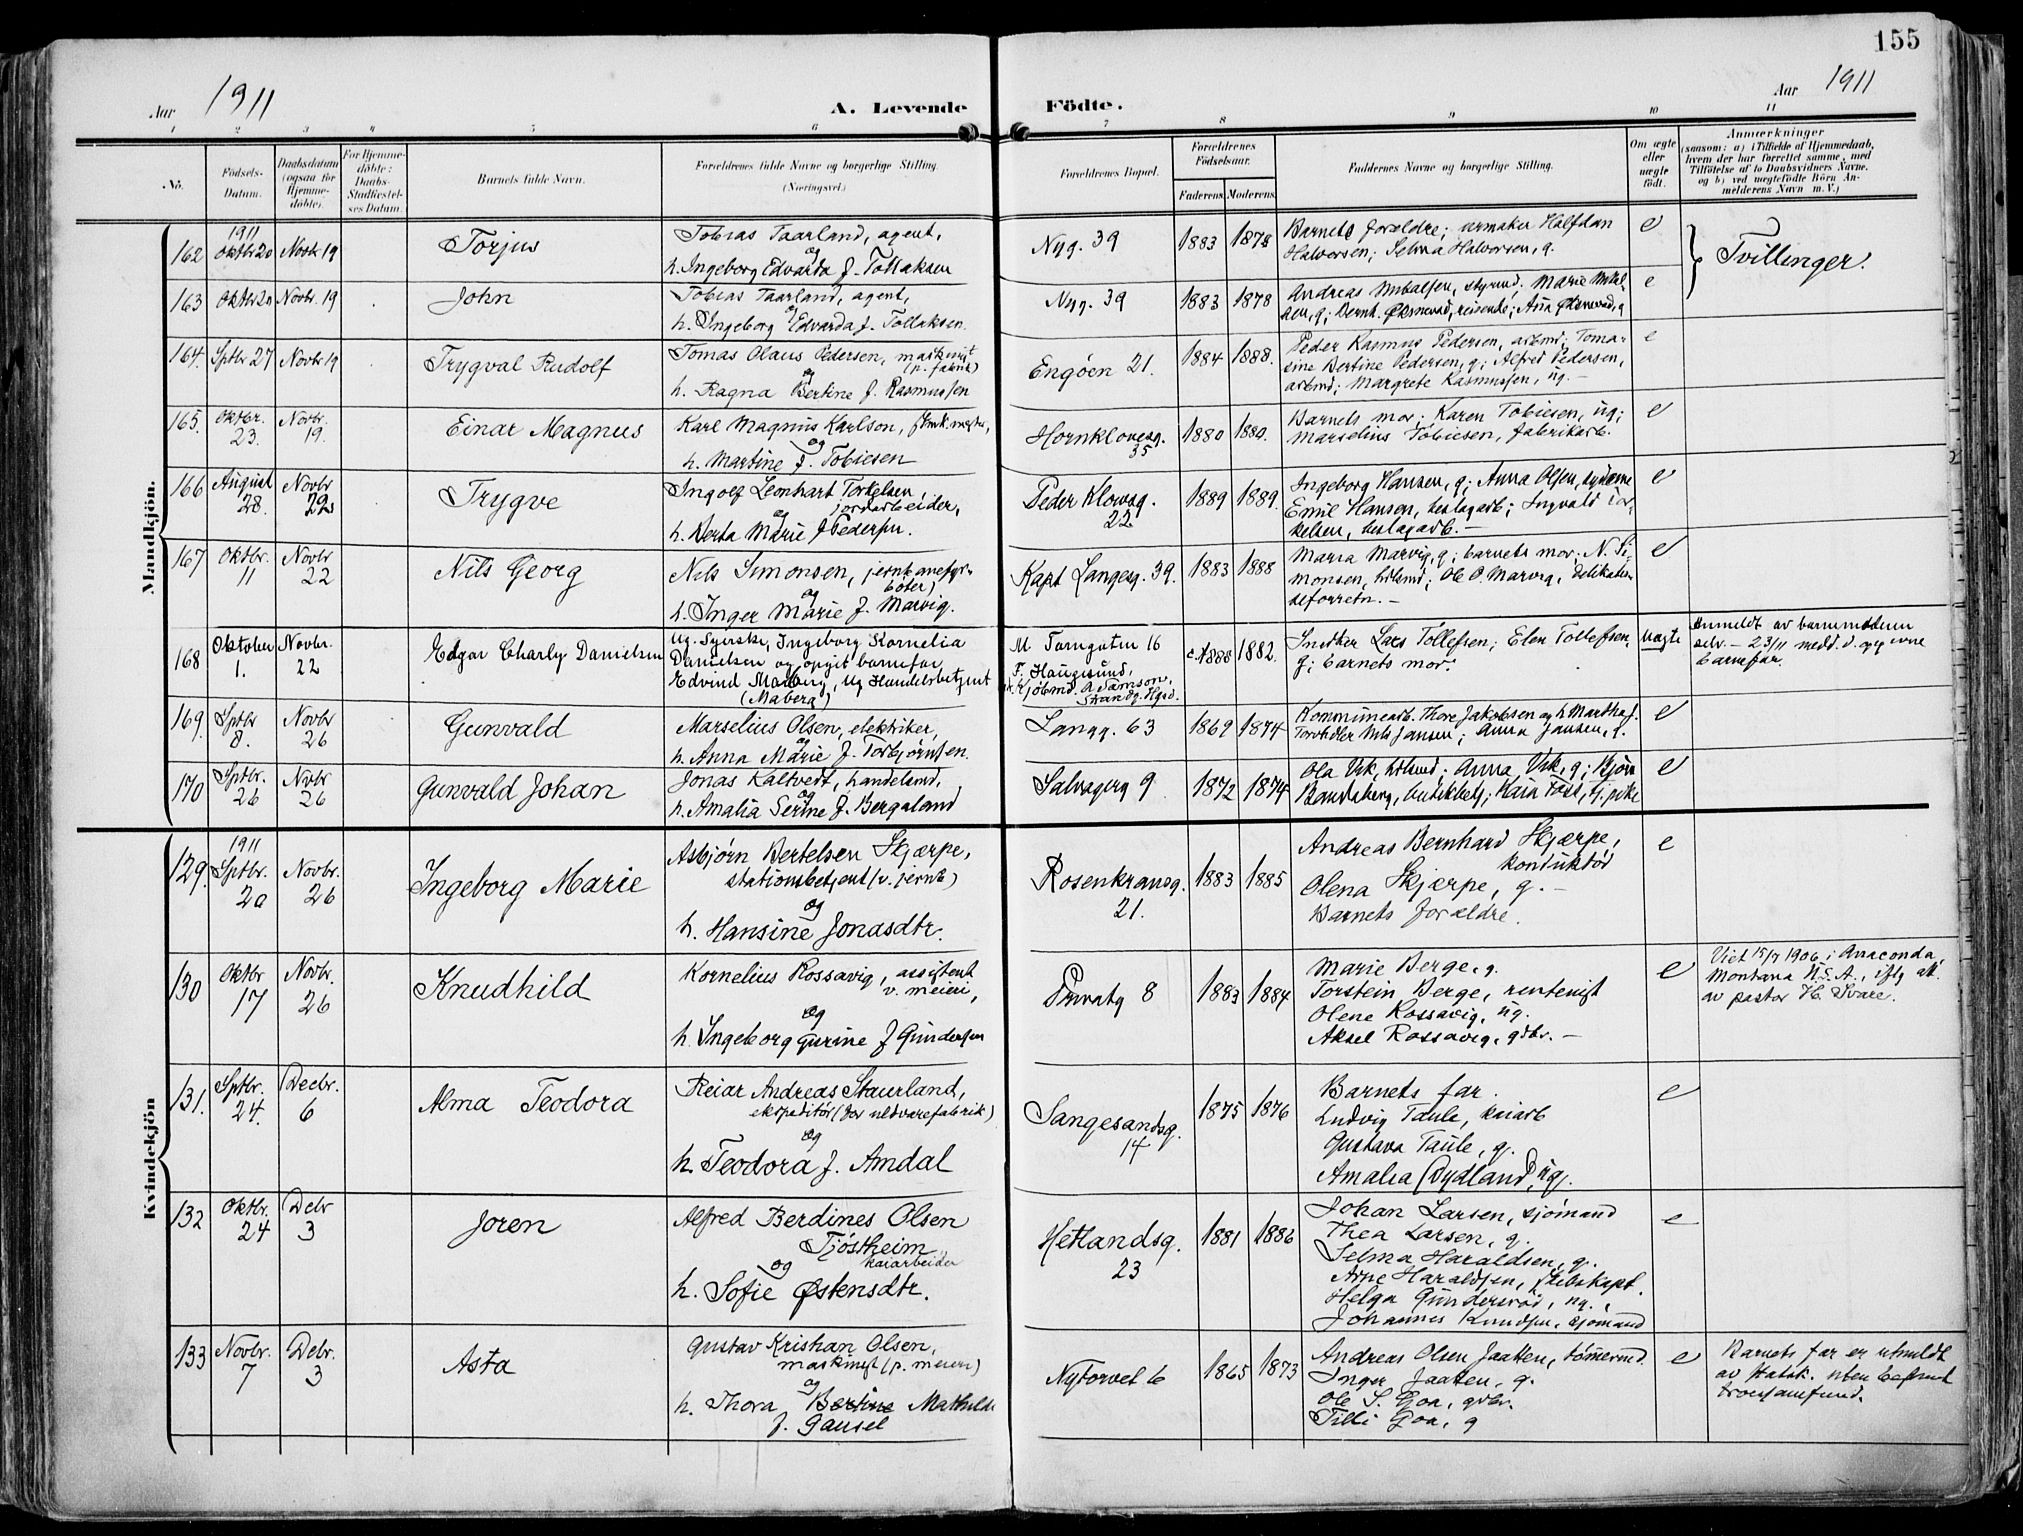 155
Aar 1911
A. Levende Födte.
Aar 1911
1 2 3 4 5 6 7 8 9 10 11
No.
Födsels-
Datum.
Daabsdatum
(ogsaa for
Hjemme-
döbte).
For Hjemme-
döbte:
Daabs-
Stadfæstel-
ses Datum.
Barnets fulde Navn.
Forældrenes fulde Navne og borgerlige Stilling
(Næringsvei.)
Forældrenes Bopæl.
Forældrenes
Födselsaar.
Faderens Moderens
Faddernes Navne og borgerlige Stilling.
Om ægte
eller
uægte
födt.
Anmærkninger
(saasom: a) i Tilfælde af Hjemmedaab,
hvem der har forrettet samme, med
Tilföielse af to Daabsvidners Navne.
og b) ved uægtefödte Börn An-
melderens Navn m. V.)
Mandkjön.
162
1911
Oktbr 20
Novbr 19
Torjus
Tobias Taarland, agent,
og
h. Ingeborg Edvarda f. Tollaksen
Nyg. 39
1883
1878
Barnets forældre; urmaker Halfdan
Halvorsen; Selma Halvorsen, g.
e
Tvillinger.
163
Oktbr 20
Novbr. 19
John
Tobias Taarland, agent,
og
h. Ingeborg Edvarda f. Tollaksen.
Nyg. 39
1883
1878
Andreas Mikalsen, styrmd. Marie Mikal-
sen, g; Bernh. Øksnevad, reisende; Ana Øksnevad, g
e
164.
Sptbr 27
Novbr 19
Trygval Rudolf
Tomas Olaus Pedersen, maskinist
(p. fabrik)
og
h. Ragna Bertine f. Rasmussen
Engøen 21.
1884
1888.
Peder Rasmus Pedersen, arbmd; Toma-
sine Bertine Pedersen, g; Alfred Pedersen,
arbmd; Margrete Rasmussen, ug. —
e
165.
Oktbr.
23.
Novbr.
19.
Einar Magnus
Karl Magnus Karlson,
og
h. Martine f. Tobiesen
Hornklovesg.
35
1880
1880.
Barnets mor; Karen Tobiesen, ug;
Marselius Tobiesen, fabrikarb.
e
166
August
28.
Novbr
22
Trygve
Ingolf Leonhart Torkelsen,
jordarbeider,
og
h. Berta Marie f Pedersen.
Peder Klowsg.
22
1889
1889.
Ingeborg Hansen, g; Anna Olsen, sydame
Emil Hansen, beslagarb; Ingvald Tor-
kelsen, beslagarb. —
e
167
Oktbr.
11
Novbr
22
Nils Georg
Nils Simonsen, jernbanefyr-
bøter)
og
h. Inger Marie f. Marvig.
Kapt Langesg. 39.
1883
1888
Maria Marvig, g; barnets mor. N. Si-
monsen, Ole O. Marvig, delikates-
seforretn. —
e
168
Oktober
1.
Novbr.
22
Edgar Charly Danielsen
Ug. Syerske, Ingeborg Kornelia
Danielsen og opgit barnefar
Edvind Maaberg, ug Handelsbetjent
(Maberg)
M Tarngaten 16
F. Haugesund,
kjøbmd. A Samson,
Strandg. Hgsd.
c. 1888
1882.
Snedker Lars Tollefsen; Elen Tollefsen,
g; barnets mor.
uægte
Anmeldt av barnemoderen
selv. — 23/11 medd. d. opgivne
barnefar.
169.
Sptbr
8.
Novbr
26
Gunvald
Marselius Olsen, elektriker,
og
h. Anna Marie f. Torbjørnsen.
Langg. 63
1869
1874
Kommunearb. Thore Jakobsen og h Martha f.
Torvhdler Nils Jansen; Anna Jansen, g.
e
170
Sptbr.
26
Novbr
26
Gunvald Johan
Jonas Kaltvedt, handelsmd,
og
h. Amalia Serine f. Bergaland
Salvagerg 9.
1872
1874
Ola Vik, Anna Vik, g; Bjørn
e
Kvindekjön
129.
1911
Sptbr.
20
Novbr.
26
Ingeborg Marie
Asbjørn Bertelsen Skjærpe,
stationsbetjent (v. jernb)
og
h. Hansine Jonasdtr.
Rosenkransg.
21.
1883
1885
Andreas Bernhard Skjærpe,
konduktør
Olena Skjærpe, g. —
Barnets forældre.
e
130
Oktbr
17
Novbr.
26
Knudhild
Kornelius Rossavig, assistent
v. meieri,
og
h. Ingeborg Gurine f Gundersen
Privatg 8
1883
1884
Marie Berge, g.
Torstein Berge, rentenist
Olene Rossavig, ug.
Aksel Rossavig, gdbr. —
e
Viet 15/7 1906 i Anaconda,
Montana U.S.A., iflg at.
av pastor H. Svare.
131.
Sptbr.
24.
Decbr.
6
Alma Teodora
Reiar Andreas Staurland,
ekspeditør (for uldvarefabrik)
og
h. Teodora f. Amdal
Sangesandsg.
14
1875
1876
Barnets far.
Ludvig Taule, kaiarb
Gustava Taule, g.
Amalia Dydland, ug.
e
132
Oktbr.
24
Debr
3
Joren
Alfred Berdines Olsen
Tjøstheim
kaiarbeider
og
h. Sofie Østensdtr.
Hetlandsg.
23
1881
1886
Johan Larsen, sjømand
Thea Larsen, g.
Selma Haraldsen, g.
Arne Haraldsen, skibskapt.
Helga Gundersrød, ug.
Johannes Knudsen, sjømand
e
133
Novbr.
7
Debr.
3
Asta
Gustav Kristian Olsen,
maskinist (p. meieri)
og
h. Thora Bertine Mathilde
f. Gausel
Nytorvet 6
1865
1873
Andreas Olsen Jaatten, tømmermd.
Inger Jaatten, g.
Ole S. Goa, gdbr.
Tilli Goa, g
e
Barnets far er utmeldt
av statsk. uten bestemt
trossamfund.